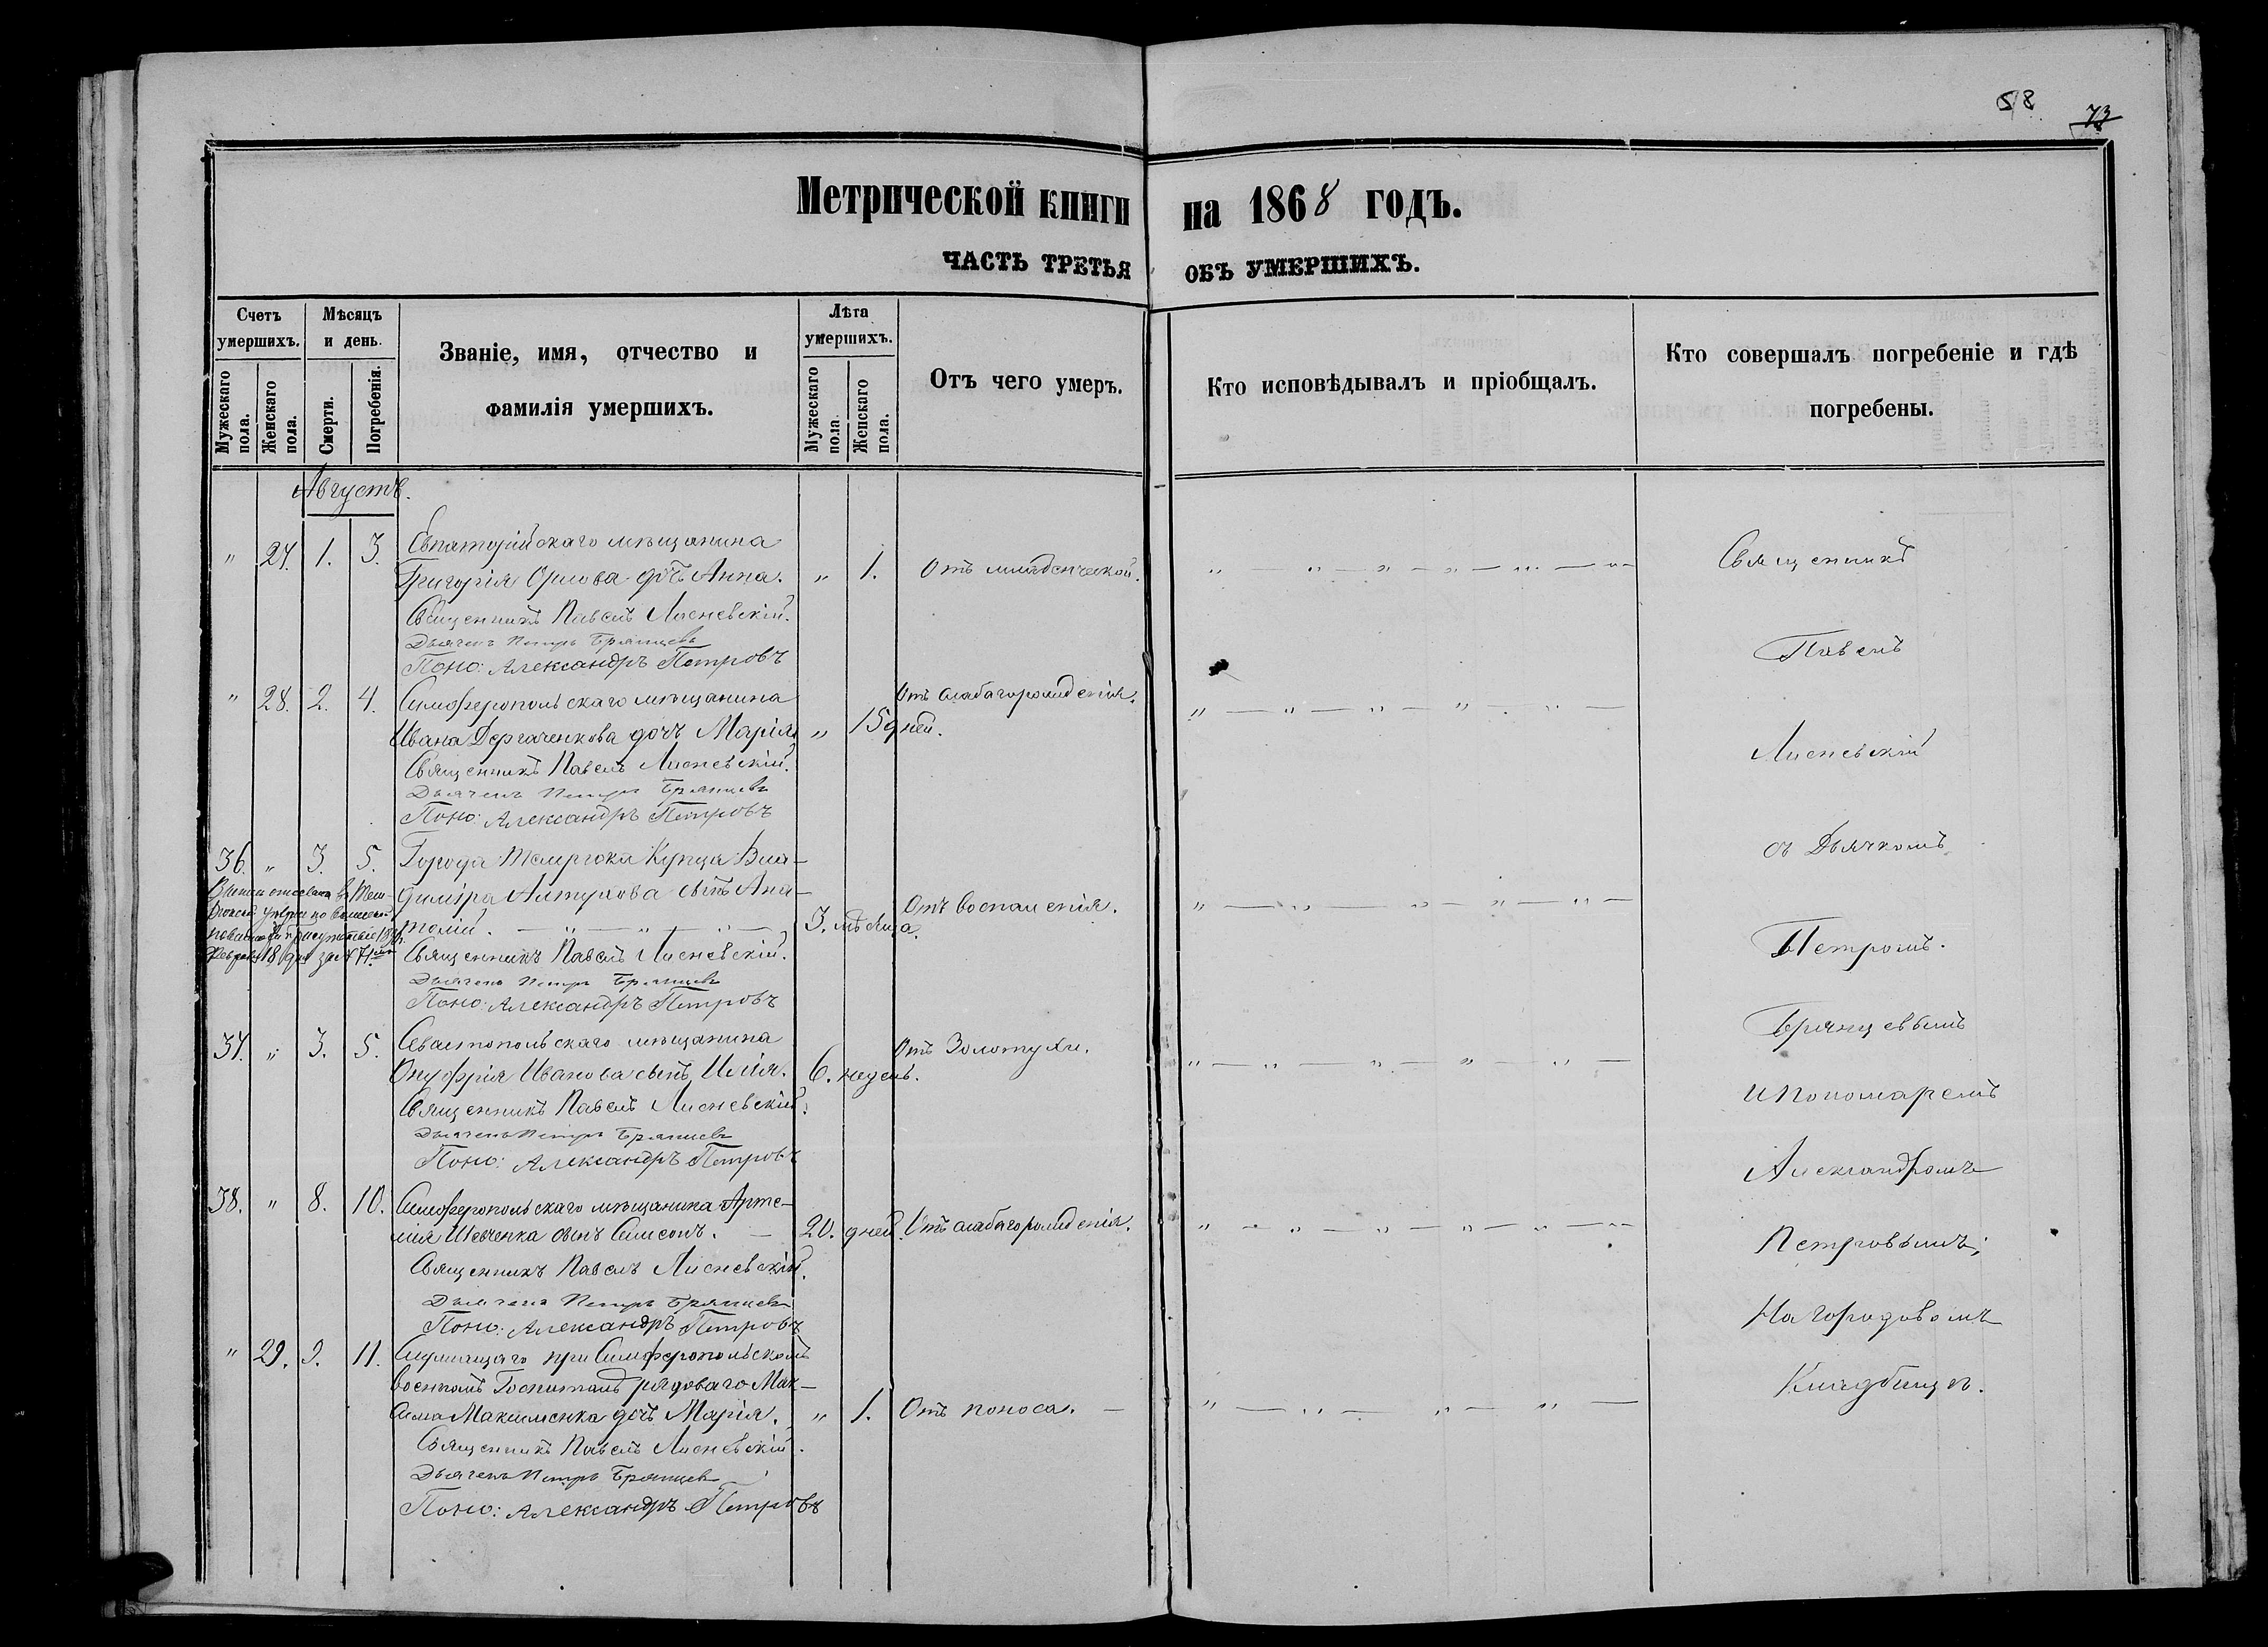 58
73
Метрической книги на 1868 годъ.
ЧАСТЬ ТРЕТЬЯ ОБЪ УМЕРШИХЪ.
Счетъ умершихъ.
Мужескаго пола.
Женскаго пола.
Мѣсяцъ и день.
Смерти.
Погребенія.
Званіе, имя, отчество и
фамилія умершихъ.
Лѣта умершихъ.
Мужескаго пола.
Женскаго пола.
Отъ чего умеръ.
Кто исповѣдывалъ и пріобщалъ.
Кто совершалъ погребеніе и гдѣ
погребены.
Августъ.
" 27. 1. 3. Евпаторійскаго мѣщанина
Григорія Орлова дочь Анна. " 1. Отъ младенческой.
Священникъ Павелъ Лисневскій.
Дьячекъ Петръ Брянцевъ
Поно: Александръ Петровъ
" 28. 2. 4. Симферопольскаго мѣщанина Отъ слабагорожденія.
Ивана Дергаченкова дочь Марія " 15 дней.
Священникъ Павелъ Лисневскій.
Дьячекъ Петръ Брянцевъ
Поно: Александръ Петровъ
36. " 3. 5. Города Темрюка Купца Вла-
диміра Алтухова сынъ Ана-
толій. 3. мѣсяца. Отъ воспаленія.
Священникъ Павелъ Лисневскій.
Дьячекъ Петръ Брянцевъ
Поно: Александръ Петровъ
37. " 3. 5. Севастопольскаго мѣщанина Отъ Золотухи.
Онуфрія Иванова сынъ Илія. 6. недель.
Священникъ Павелъ Лисневскій.
Дьячекъ Петръ Брянцевъ
Поно: Александръ Петровъ
38. " 8. 10. Симферопольскаго мѣщанина Арте-
мія Шевченка сынъ Симеонъ. 20. дней. Отъ слабагорожденія.
Священникъ Павелъ Лисневскій.
Дьячекъ Петръ Брянцевъ
Поно: Александръ Петровъ
" 29. 9. 11. Служащаго при Симферопольскомъ
военномъ Госпиталѣ рядоваго Мак-
сима Максименка дочь Марія. " 1. Отъ поноса.
Священникъ Павелъ Лисневскій.
Дьячекъ Петръ Брянцевъ
Поно: Александръ Петровъ
Священникъ
Павелъ
Лисневскій
съ Дьячкомъ
Петромъ.
Брянцевымъ
и Пономаремъ
Александромъ
Петровымъ;
На городовомъ
Кладбищѣ.